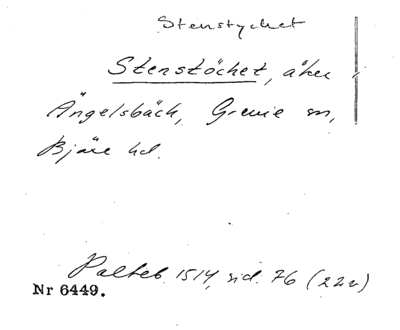 Stenstycket
Stenstöcket, åker
Ängelsbäck, Grevie sn,
Bjäre hd.
Palteb. 1514, sid. 76 (22v)
Nr 6449.